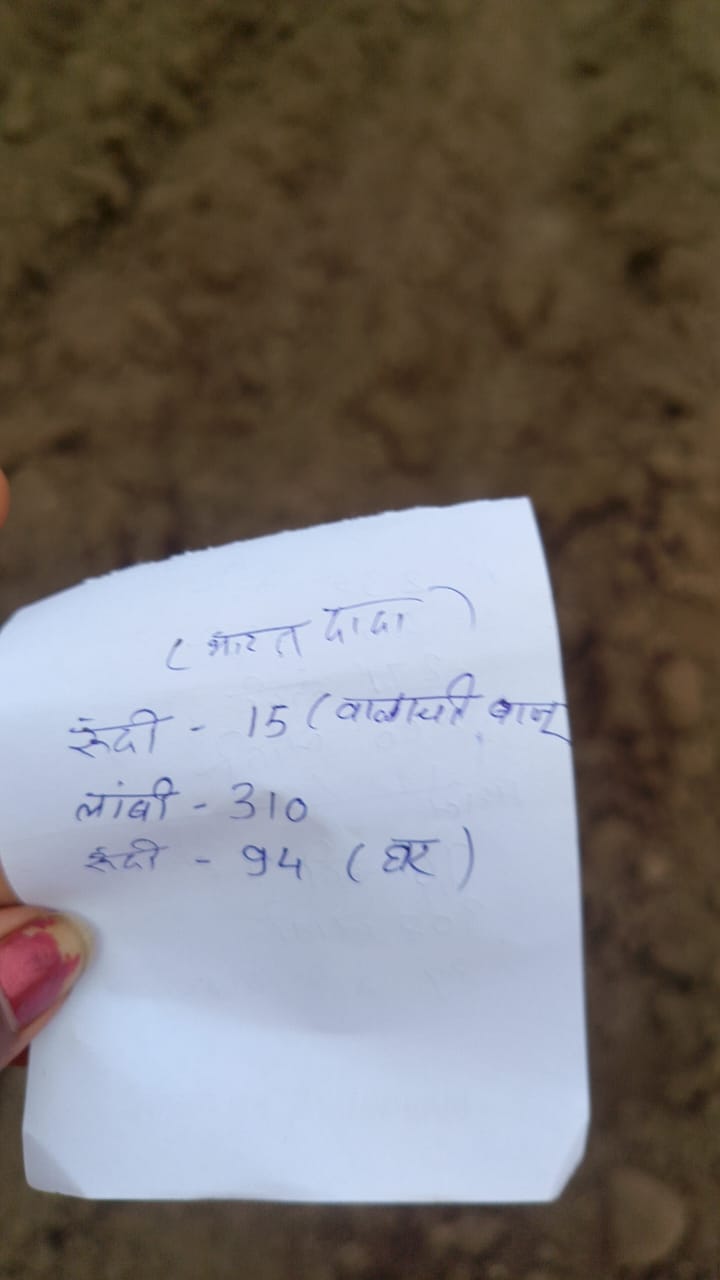 (भारत दादा)
रूंदी - 15 (वाळाची बाजू
लांबी - 310
रूंदी - 94 (घर)